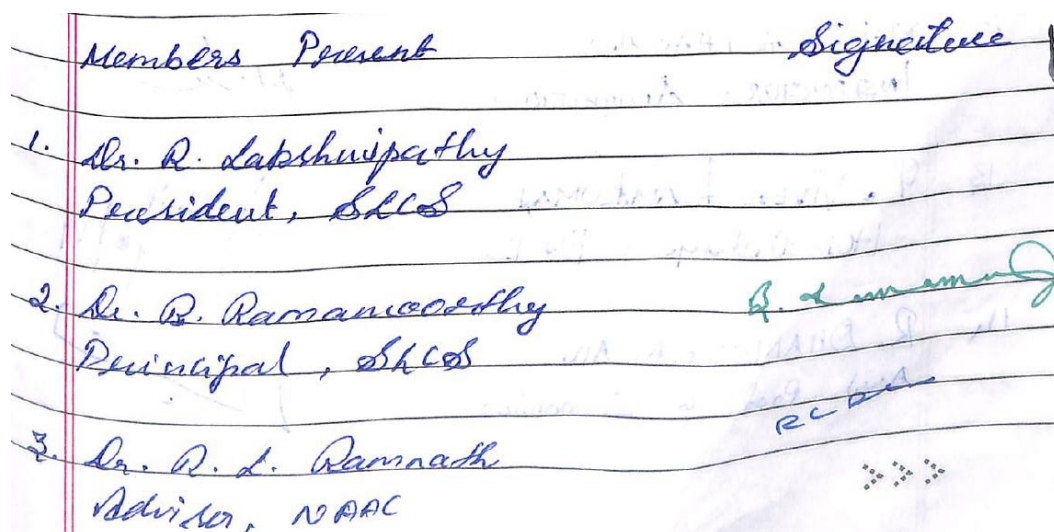 Members Present Signature
1. Dr. R. Lakshmipathy
President, SLCS
2. Dr. R. Ramamoorthy
Principal, SLCS
3. Dr. R. L. Ramnath
Advisor, NAAC